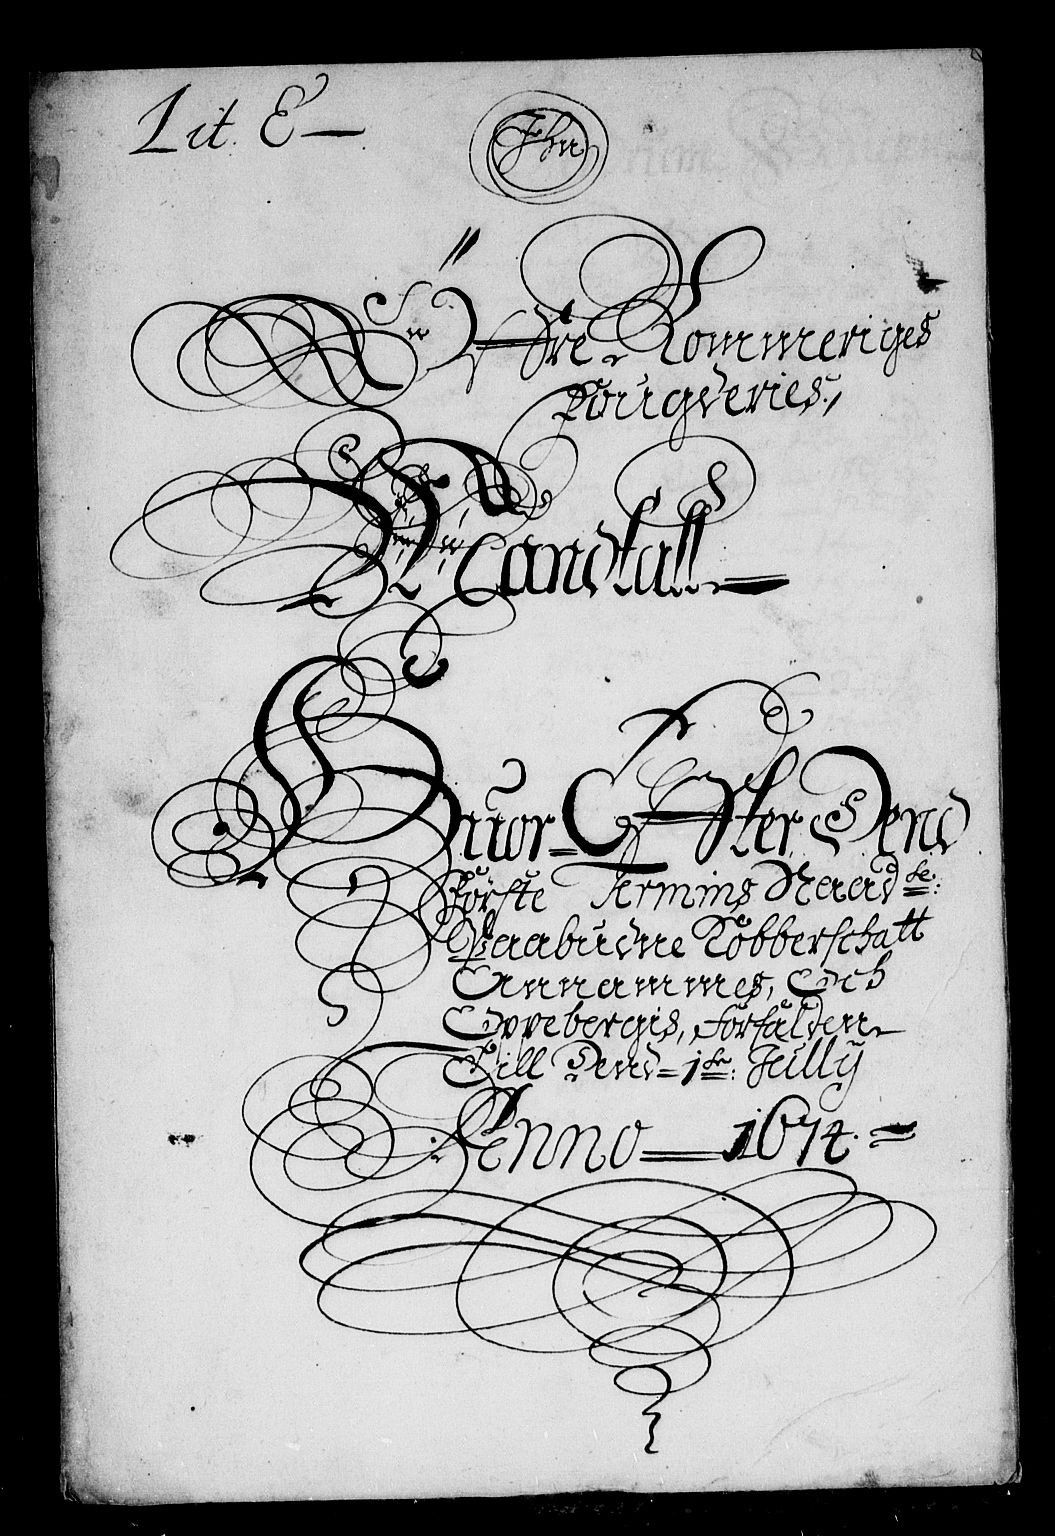 Lit. E
Jhn
Øfre Rommeriges
Fougderies,
Mandtall
Huor Effter Dend
Förste Termins Naadse:
Paabudne Kobberschatt
Annammes, Och
Opebergis, Forfalden
Till Dend 1ste: Jully
Anno 1674.